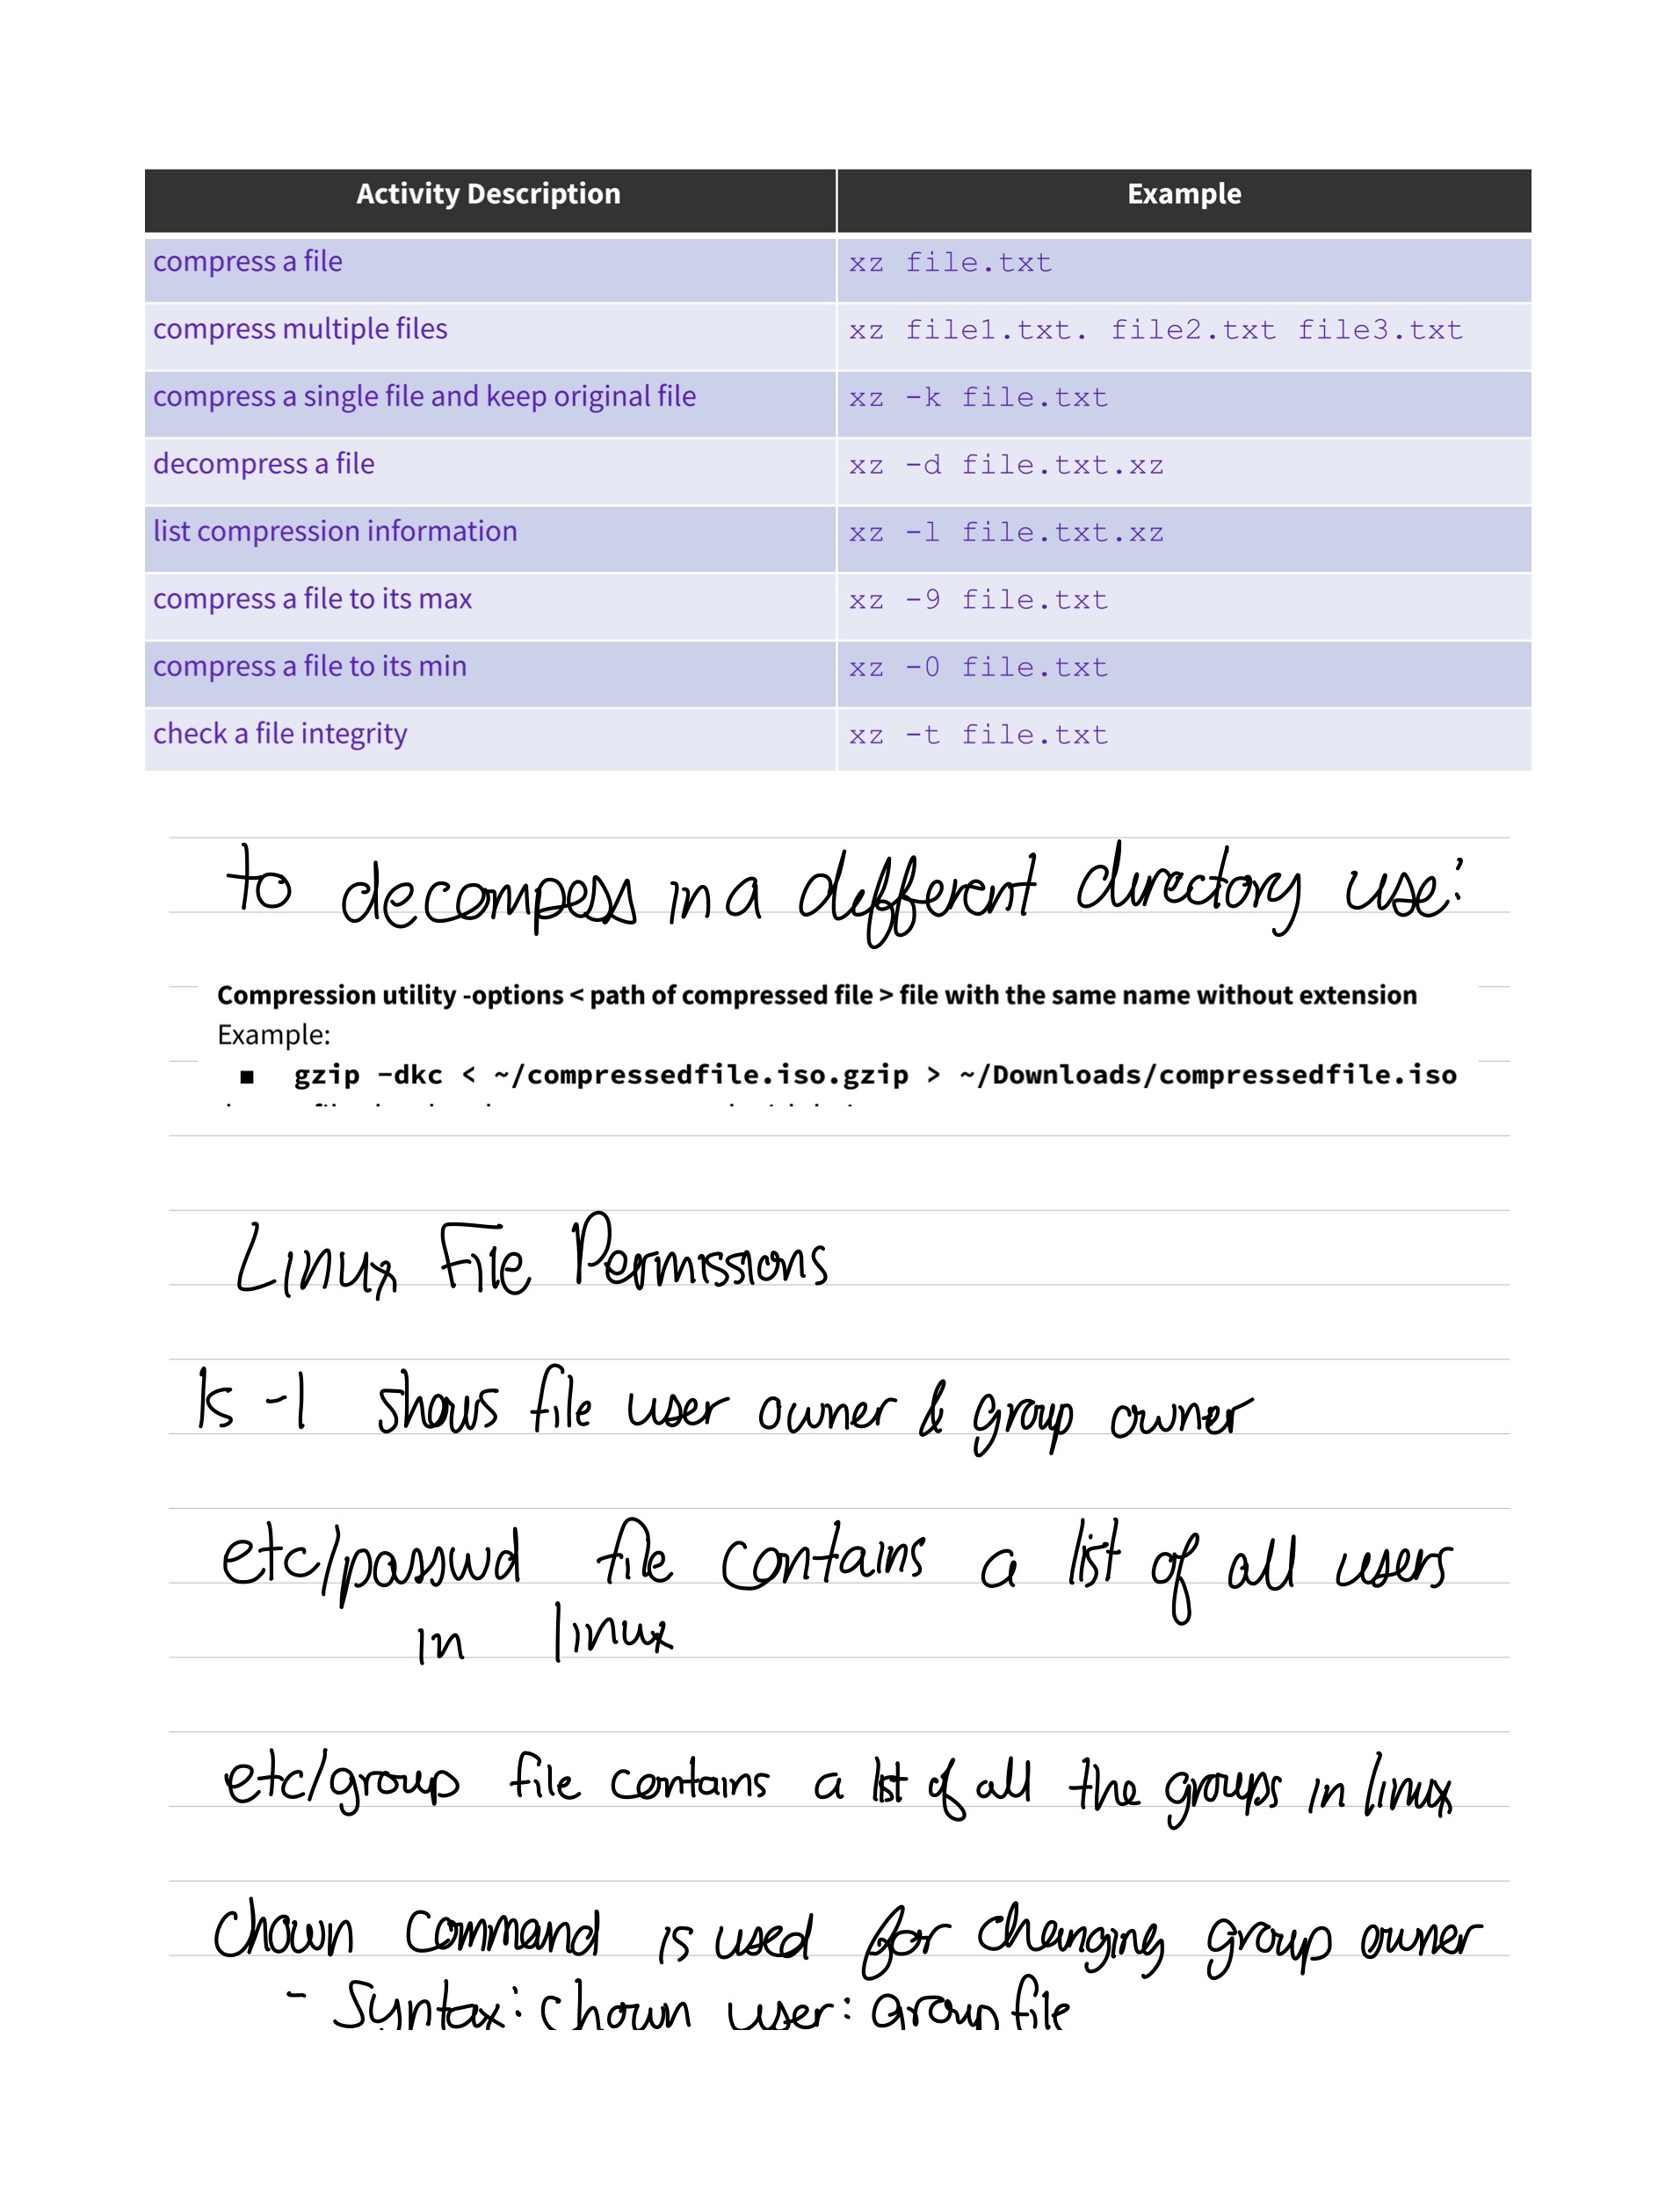 Activity Description Example
compress a file xz file.txt
compress multiple files xz file1.txt. file2.txt file3.txt
compress a single file and keep original file xz -k file.txt
decompress a file xz -d file.txt.xz
list compression information xz -l file.txt.xz
compress a file to its max xz -9 file.txt
compress a file to its min xz -0 file.txt
check a file integrity xz -t file.txt
to decompess in a different directory use:
Compression utility -options < path of compressed file > file with the same name without extension
Example:
▪ gzip -dkc < ~/compressedfile.iso.gzip > ~/Downloads/compressedfile.iso
Linux File Permissions
ls -l shows file user owner & group owner
etc/passwd file contains a list of all users
in linux
etc/group file contains a list of all the groups in linux
chown command is used for changing group owner
- Syntax: chown user: group file